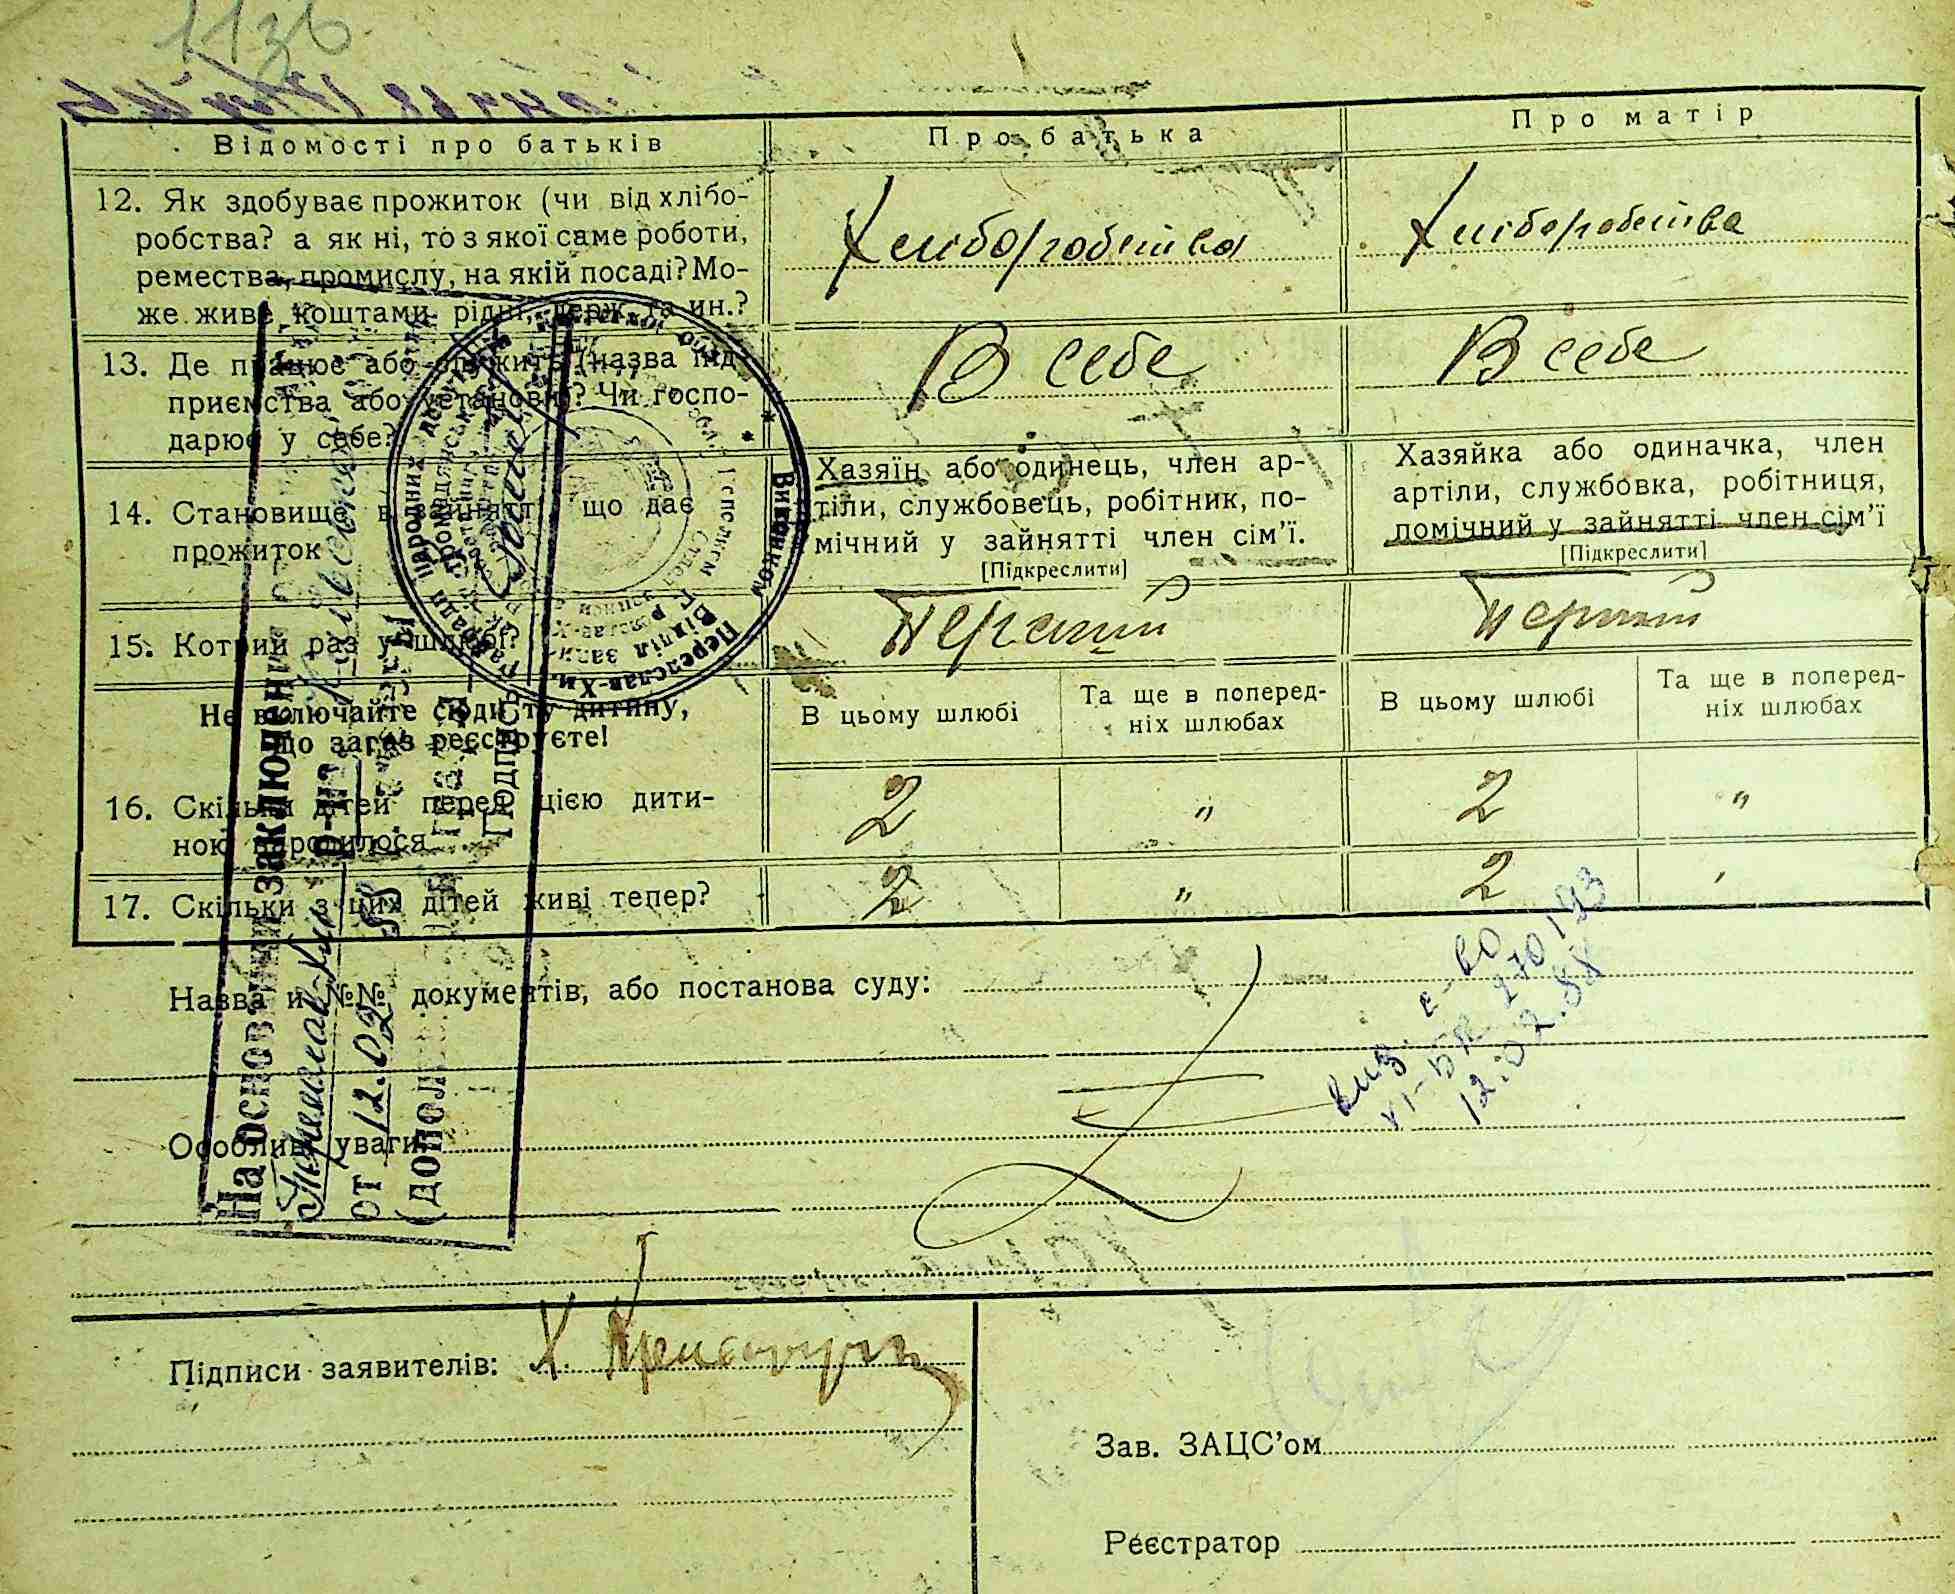 Відомості про батьків
Про батька
Про матір
12. Як здобуває прожиток (чи від хлібо-
робства? а як ні, то з якої саме роботи,
ремества, промислу, на якій посаді? Мо-
же живе коштами рідні, держ. та ин.?
Хліборобства
Хліборобства
13. Де працює або служить (назва під-
приємства або установи)? Чи госпо-
дарює у себе?
В себе
В себе
14. Становище в зайнятті, що дає
прожиток
Хазяїн або одинець, член ар-
тіли, службовець, робітник, по-
мічний у зайнятті член сім'ї.
[Підкреслити]
Хазяйка або одиначка, член
артіли, службовка, робітниця,
помічний у зайнятті член сім'ї
[Підкреслити]
15. Котрий раз у шлюбі?
Перший
Перший
Не включайте сюди ту дитину,
що зараз реєструєте!
В цьому шлюбі
Та ще в поперед-
ніх шлюбах
В цьому шлюбі
Та ще в поперед-
ніх шлюбах
16. Скільки дітей перед цією дити-
ною народилося
2 " 2 "
17. Скільки з цих дітей живі тепер?
2 " 2
Назва и №№ документів, або постанова суду:
270193
12.02.88
Особливі уваги
На основании заключени
Переяслав-Хм
от 12.02 88
(допол
Подпись
Виконком
Переяслав-Хм.
Відділ запи
народних
громадянськ
Підписи заявителів: Х.
Зав. ЗАЦС'ом
Реєстратор